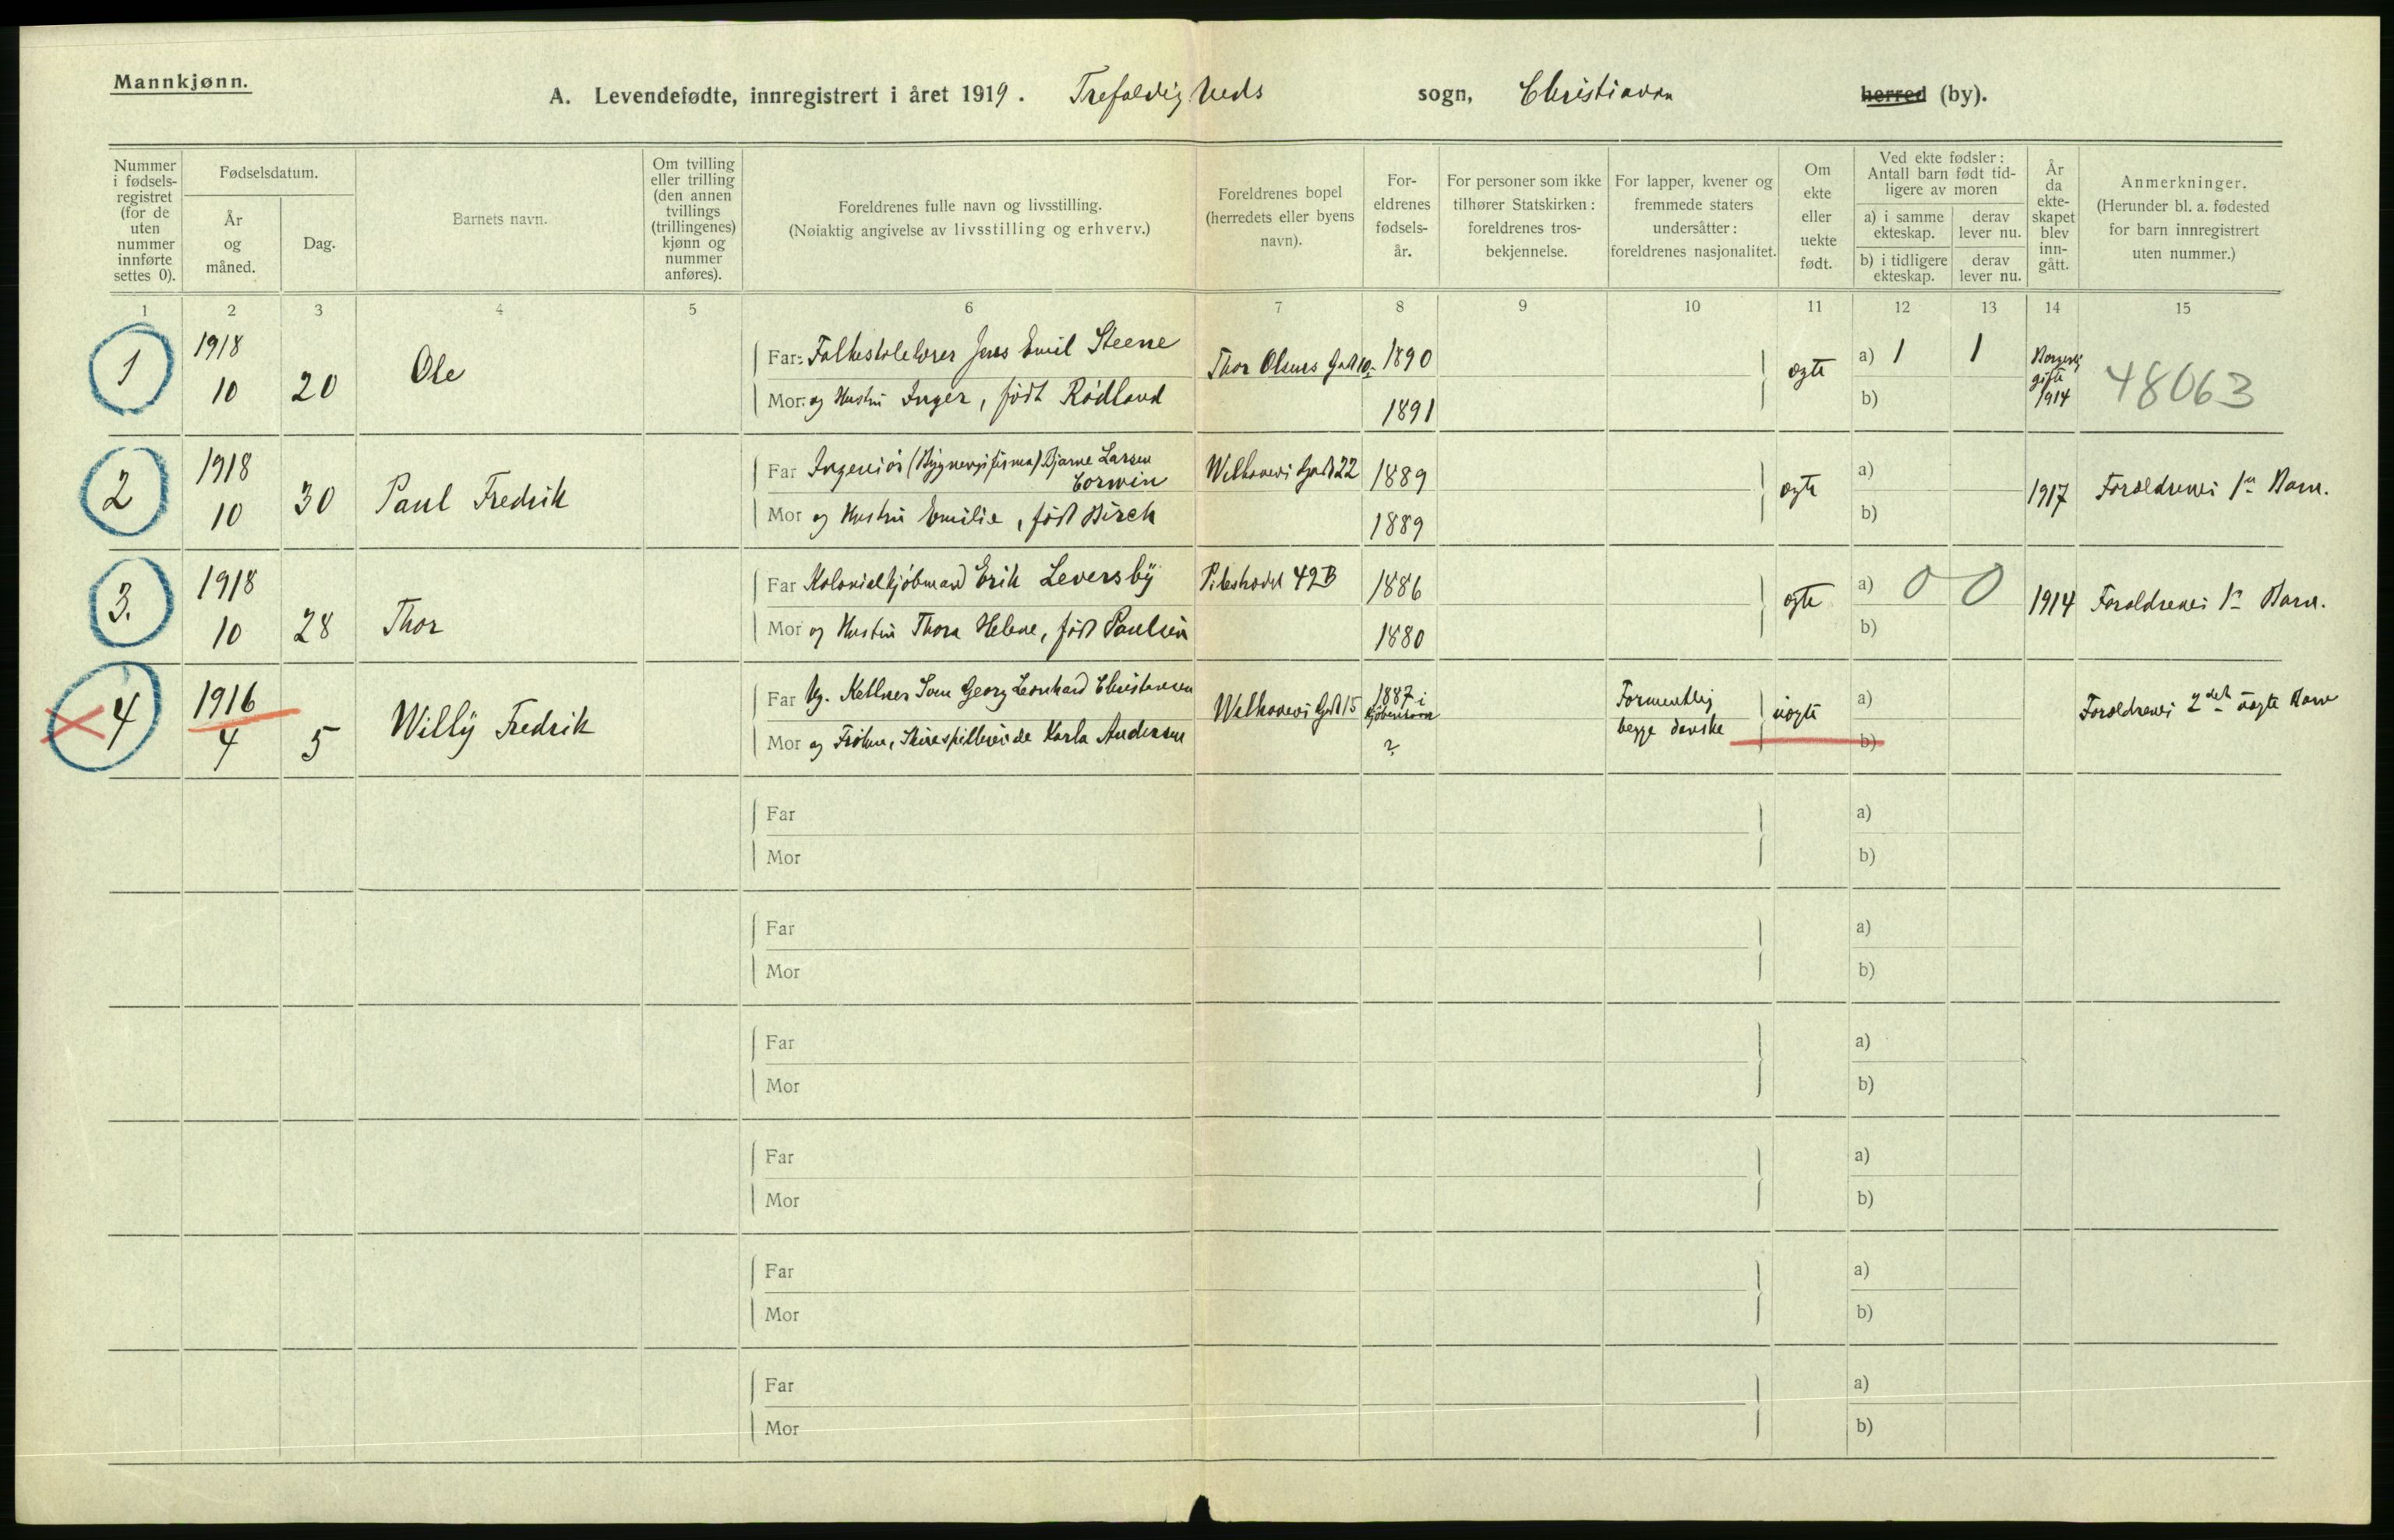 Mannkjønn.
A. Levendefødte, innregistrert i året 1919. Trefoldigheds sogn, Christiania herred (by).
Nummer i fødsels-registret (for de uten nummer innførte settes 0).
Fødselsdatum.
År og måned.
Dag.
Barnets navn.
Om tvilling eller trilling (den annen tvillings (trillingenes) kjønn og nummer anføres).
Foreldrenes fulle navn og livsstilling.
(Nøiaktig angivelse av livsstilling og erhverv.)
Foreldrenes bopel (herredets eller byens navn).
For-eldrenes fødsels-år.
For personer som ikke tilhører Statskirken: foreldrenes tros-bekjennelse.
For lapper, kvener og fremmede staters undersåtter: foreldrenes nasjonalitet.
Om ekte eller uekte født.
Ved ekte fødsler: Antall barn født tid-ligere av moren
a) i samme ekteskap.
derav lever nu.
b) i tidligere ekteskap.
derav lever nu.
År da ekte-skapet blev inn-gått.
Anmerkninger.
(Herunder bl. a. fødested for barn innregistrert uten nummer.)
1 2 3 4 5 6 7 8 9 10 11 12 13 14 15
1 1918 10 20 Ole
Far: Folkeskolelærer Jens Emil Steene
Thor Olsens Gade 10 1890
Mor: og Hustru Inger, født Rødland
1891
ægte a) 1 1
b)
Borgerlig gifte 1914
48063
2 1918 10 30 Paul Fredrik
Far Ingeniør Bjarne Larsen Corwin
Welhavens Gade 22 1889
Mor og Hustru Emilie, født Birch
1889
ægte a)
b)
1917 Forældrenes 1ste Barn.
3. 1918 10 28 Thor
Far Kolonialkjøbmand Erik Leversby
Pilestrædet 49B 1886
Mor og Hustru Thora Helene, født Paulsen
1880
ægte a) 0 0
b)
1914 Forældrenes 1ste Barn.
4 1916 4 5 Willy Fredrik
Far Ug. Kellner Sven Georg Leonhard Christensen
Welhavens Gade 15 1887 i Kjøbenhavn
Mor og Frøken, Skuespillerinde Karla Andersen
?
Formentlig begge danske
uægte a)
b)
Forældrenes 2det uægte Barn
Far a)
Mor b)
Far a)
Mor b)
Far a)
Mor b)
Far a)
Mor b)
Far a)
Mor b)
Far a)
Mor b)